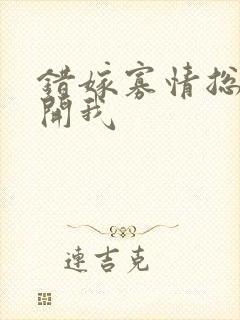 錯嫁寡情總
開我
連吉克